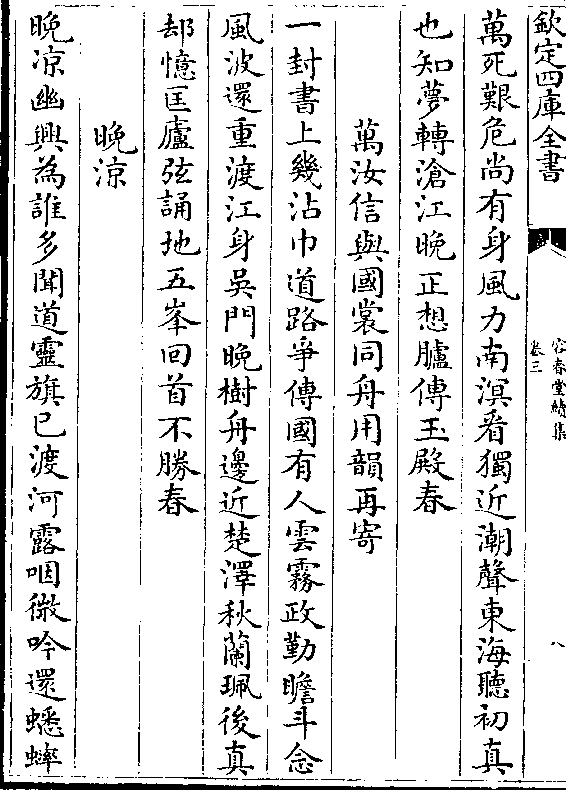 欽定四庫全書
容春堂續集
卷三
八
萬死艱危尚有身風力南溟看獨近潮聲東海聽初真
也知夢轉滄江晚正想臚傳玉殿春
萬汝信與國裳同舟用韻再寄
一封書上幾沾巾道路爭傳國有人雲霧政勤瞻斗念
風波還重渡江身吳門晚樹舟邊近楚澤秋蘭珮後真
却憶匡廬弦誦地五峯回首不勝春
晚凉
晚凉幽興為誰多聞道靈旗已渡河露咽微吟還蟋蟀